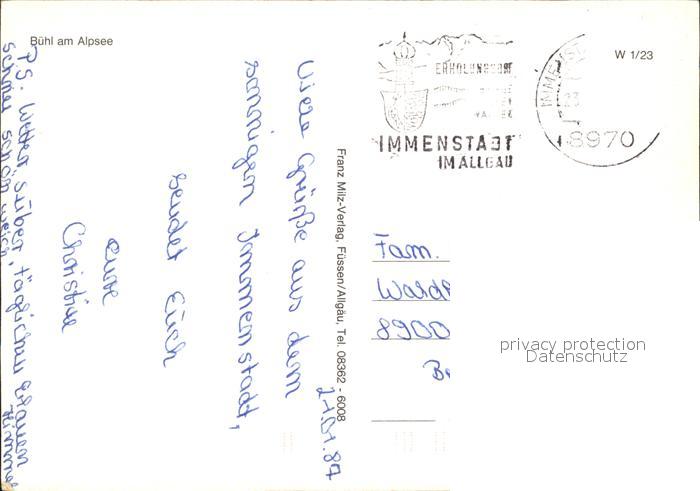 Bühl am Alpsee
W 1/23
ERHOLUNGSORT
IMMENSTADT
IM ALLGÄU
8970
Franz Milz-Verlag, Füssen/Allgäu, Tel. 08362 - 6008
24.01.87
Viele Grüße aus dem
sonnigen Immenstadt,
sendet Euch
eure
Christine
P.S: Wetter super, täglich blauen Himmel
Schnee schön weich,
Fam.
8900
privacy protection
Datenschutz